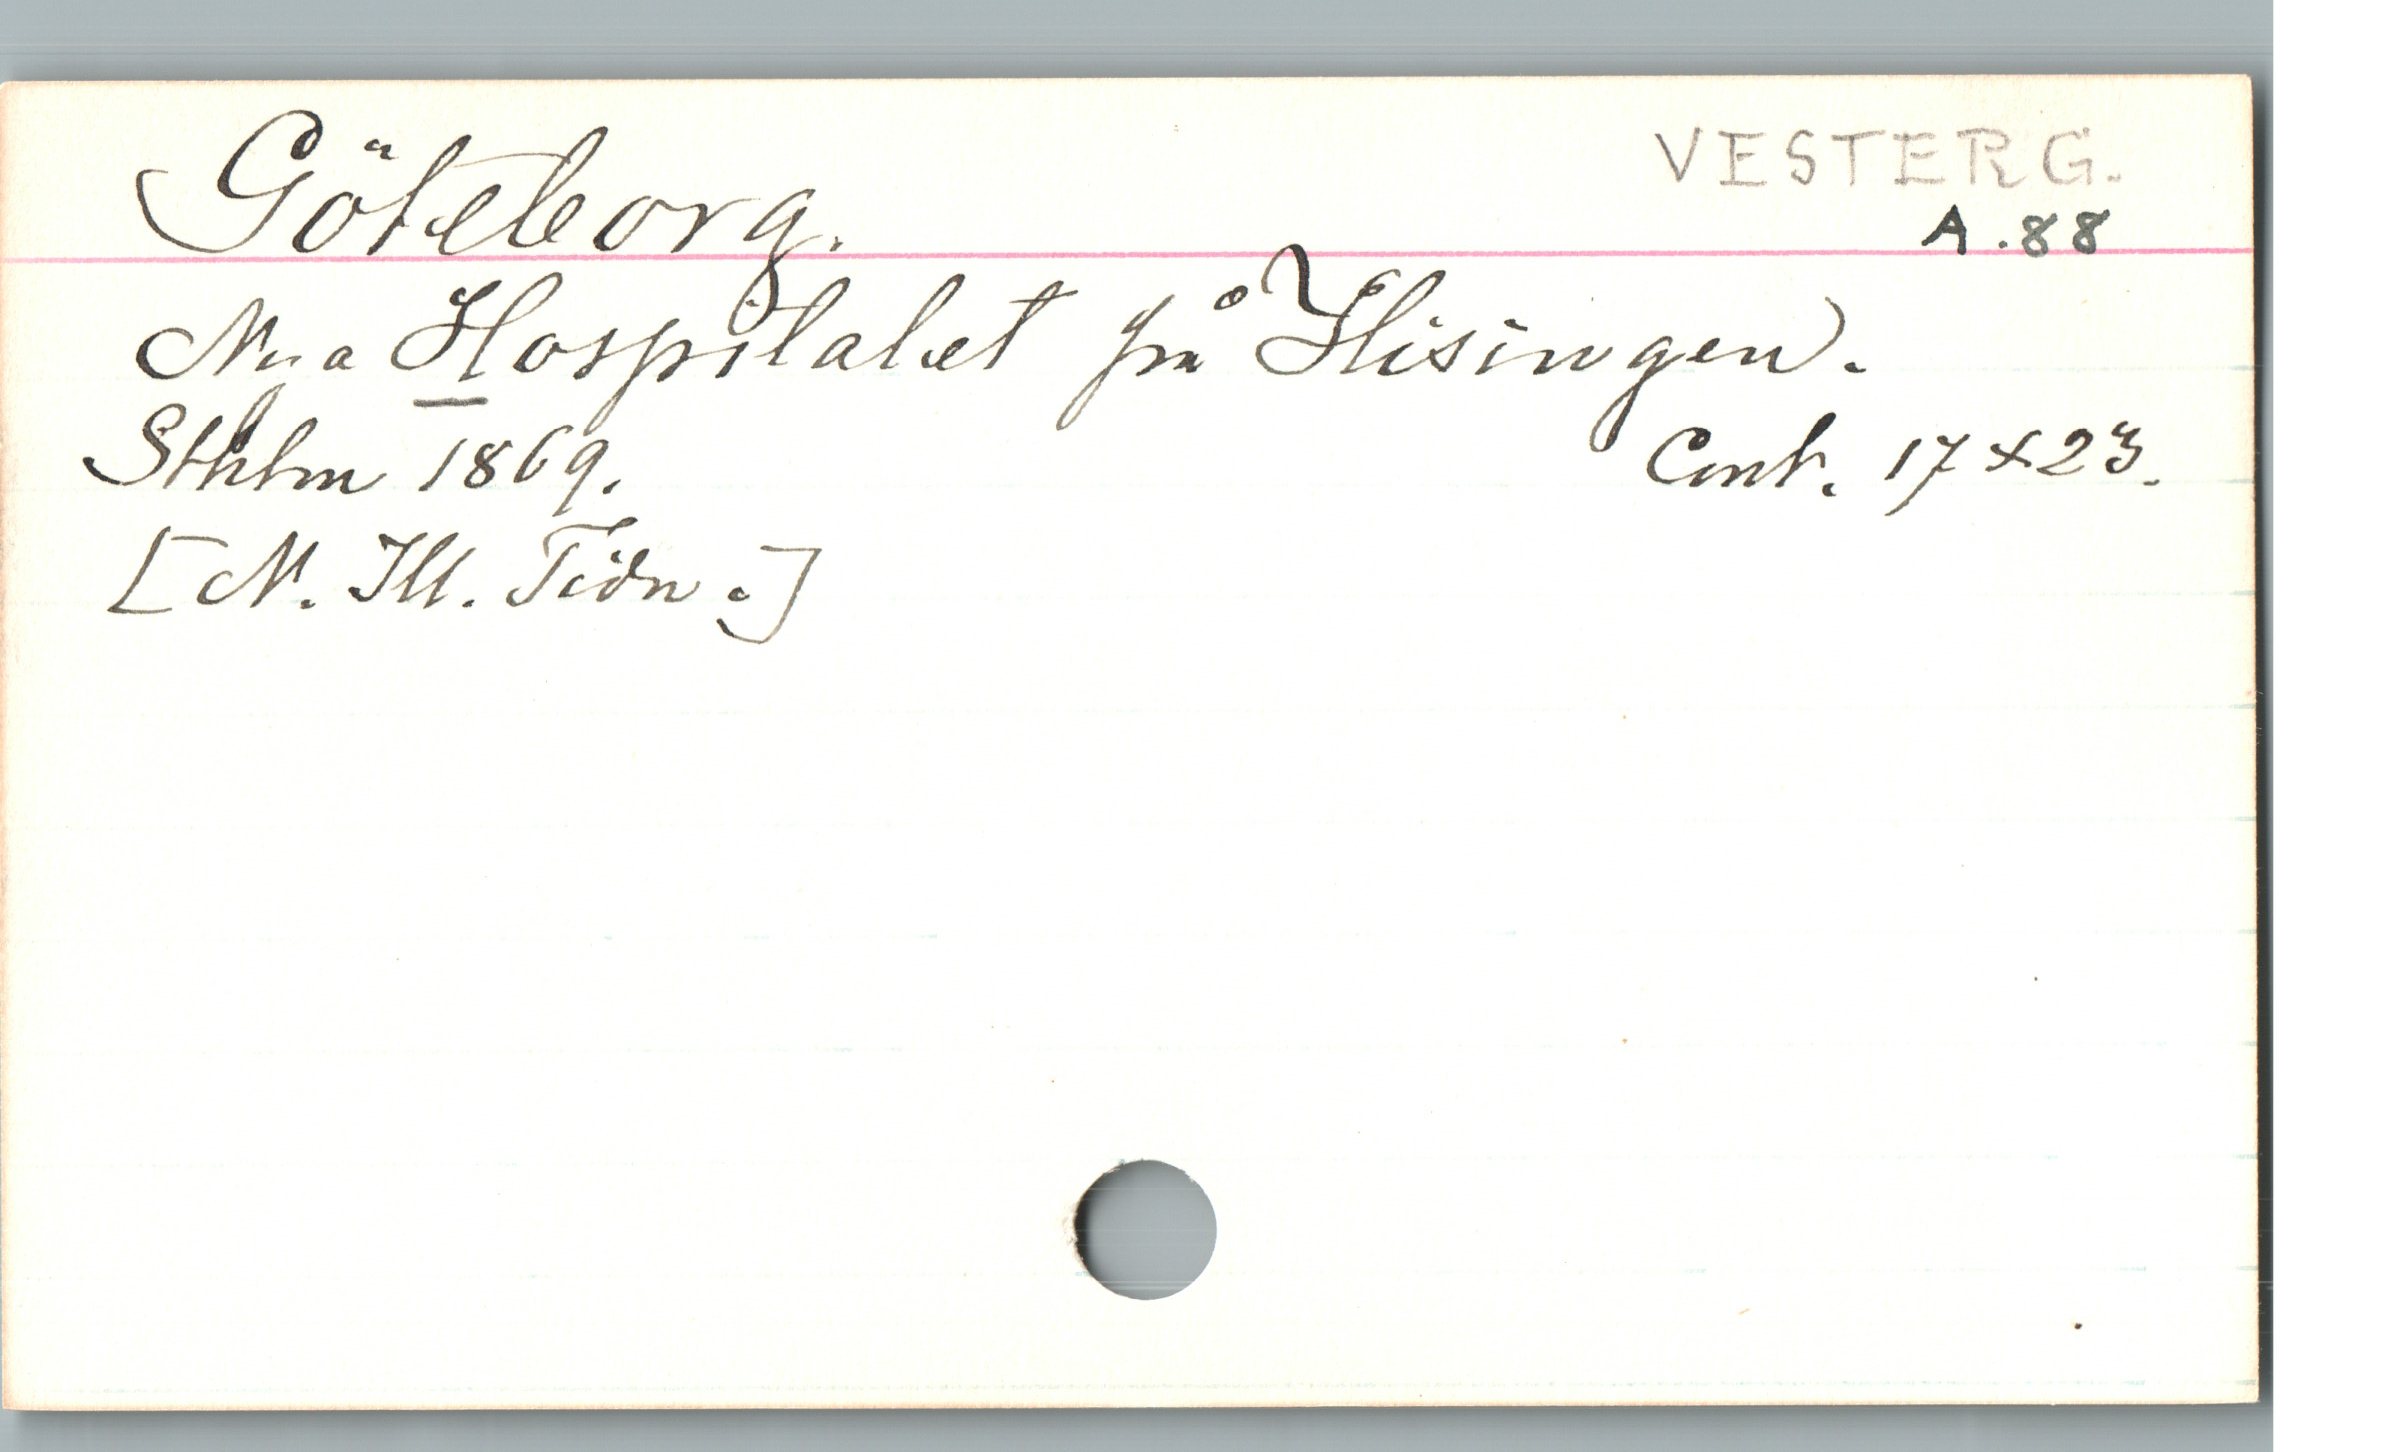 Göteborg.
VESTERG.
A.88
Nya Hospitalet på Hisingen.
Sthlm 1869.
Cont. 17×23.
[N. Ill. Tidn.]